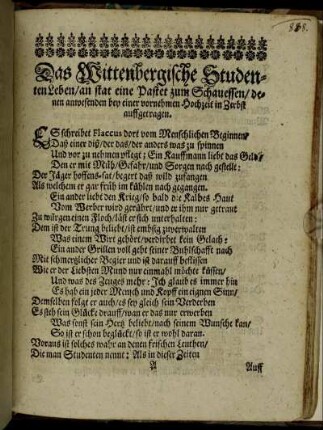 Das Wittenbergische Studen-
ten Leben/an stat eine Pastet zum Schauessen/de-
nen anwesenden bey einer vornehmen Hochzeit in Zerbst
auffgetragen.
ES schreibet Flaccus dort vom Menschlichen Beginnen/
Daß einer diß/der das/der anders was zu spinnen
Und vor zu nehmen pflegt; Ein Kauffmann liebt das Geld/
Den er mit Müh/Gefahr/und Sorgen nach gestellt:
Der Jäger hoffens-sat/begert daß wild zufangen
Als welchem er gar früh im kühlen nach gegangen.
Ein ander liebt den Krieg/so bald die Kalbes Haut
Vom Werber wird gerührt/und er ihm nur getraut
Zu würgen einen Floch/läst er sich unterhalten:
Dem ist der Trunck beliebt/ist embsig zuverwalten
Was einem Wirt gehört/verdirbet kein Gelach:
Ein ander Grillen voll geht seiner Buhlschafft nach
Mit schmertzlicher Begier und ist darauff beflissen
Wie er der Liebsten Mund nur einmahl möchte küssen/
Und was des Zeuges mehr: Ich glaub es immer hin
Es hab ein jeder Mensch und Kopff ein eignen Sinn/
Demselben folgt er auch/es sey gleich sein Verderben
Es steh sein Glücke drauff/wan er das nur erwerben
Was sonst sein Hertz beliebt/nach seinem Wunsche kan/
So ist er schon beglückt/so ist er wohl daran.
Voraus ist solches wahr an denen frischen Leuthen/
Die man Studenten nennt: Als in dieser Zeiten
A
Auff